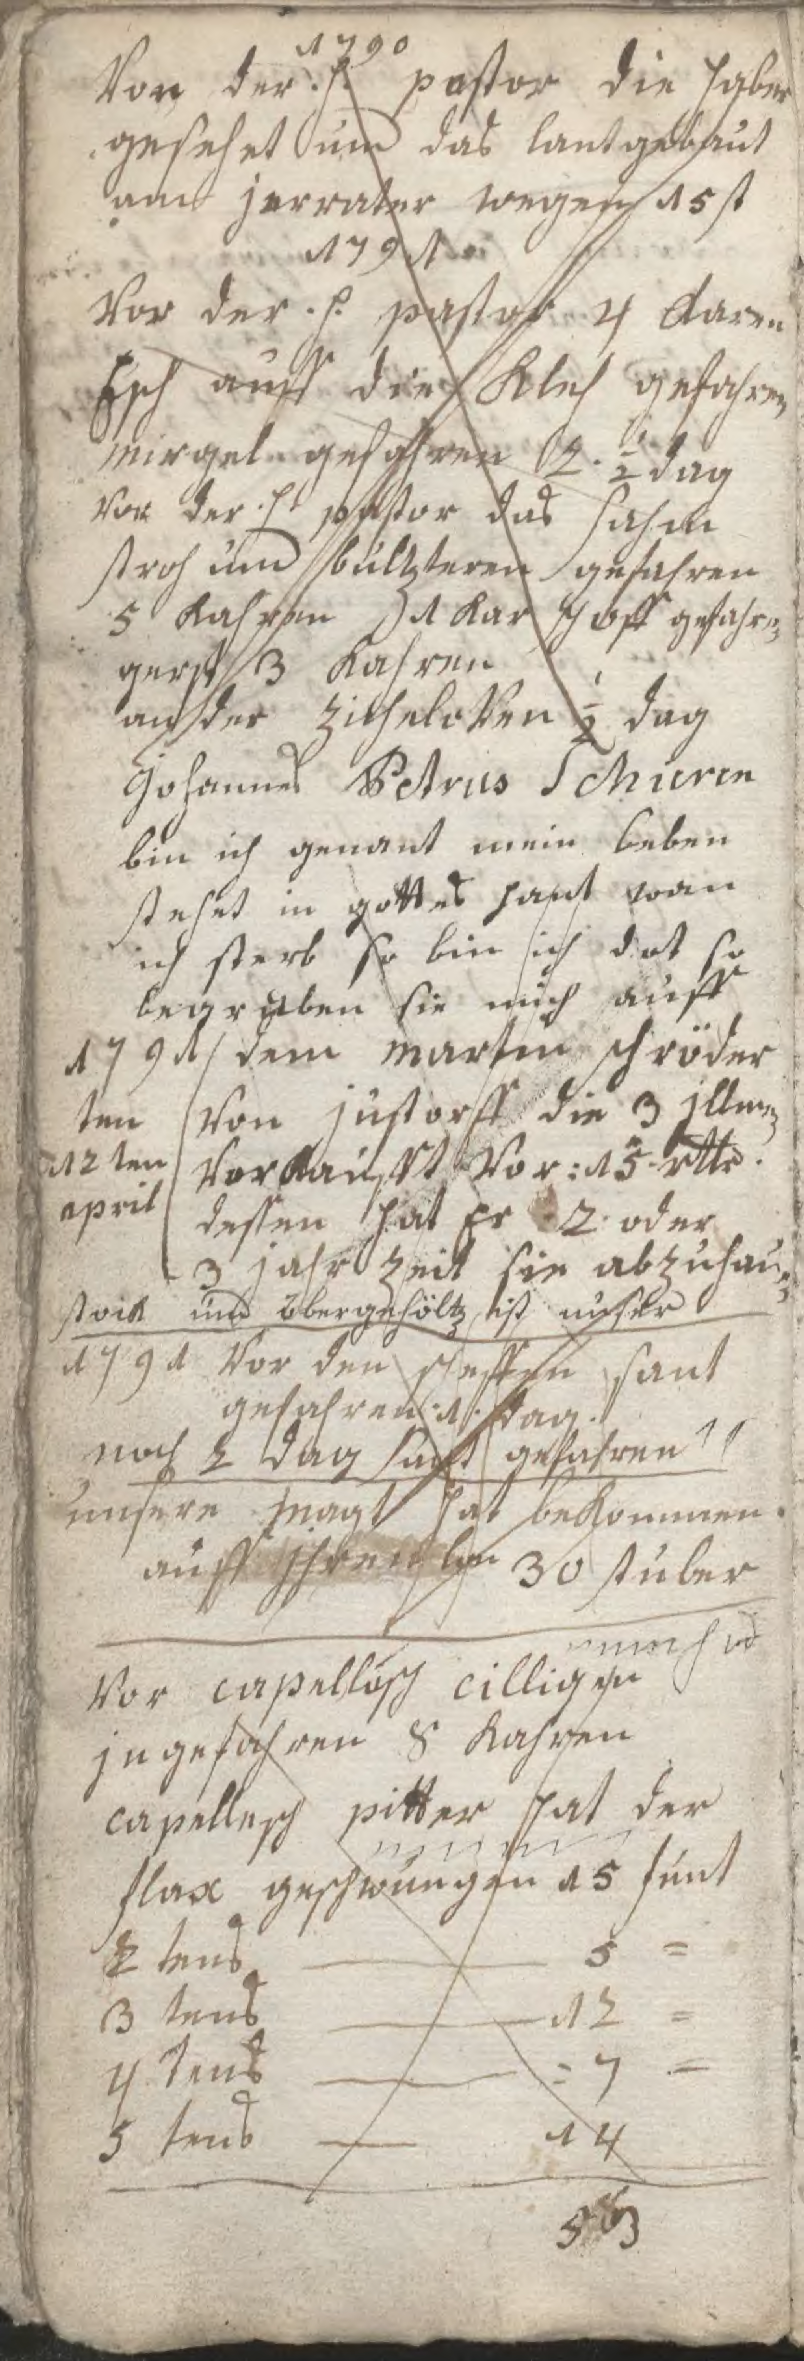 1790
Von der. h. pastor die haber
gesehet und das lantgebaut
am jerrater wegen 15 st
1791
Vor der. h. pastor 4 Karen
Esch auff die Kleh gefahren
mirgel gefahren 2. ½ dag
vor der. h. pastor das sahm
stroh und bultzteren gefahren
5 Kahren 1 Kar schoff gefahren
gerst 3 Kahren
an der zichelofen ½ dag
Johannes Petrus Schieren
bin ich genant mein leben
stehet in gottes hant wan
ich sterb so bin ich dot so
begraben sie mich auff
1791 dem martin schröder
ten von justorff die 3 illmen
12 ten Vorkaufft Vor: 15 rttr.
april dessen hat Er 2 oder
3 jahr zeit sie abzuhauen
stock und öbergehöltz ist unser
1791 Vor den scheffen sant
gefahren: 1. dag.
noch 2 dag sant gefahren
unsere magt hat bekommen.
auff ihren lon 30 stuber
Vor capellösch cilligen
ingefahren 8 Kahren
capellesch pitter hat der
flax geschwungen 15 funt
2 tens 5 =
3 tens 12 =
4 tens = 7 =
5 tens 14
53